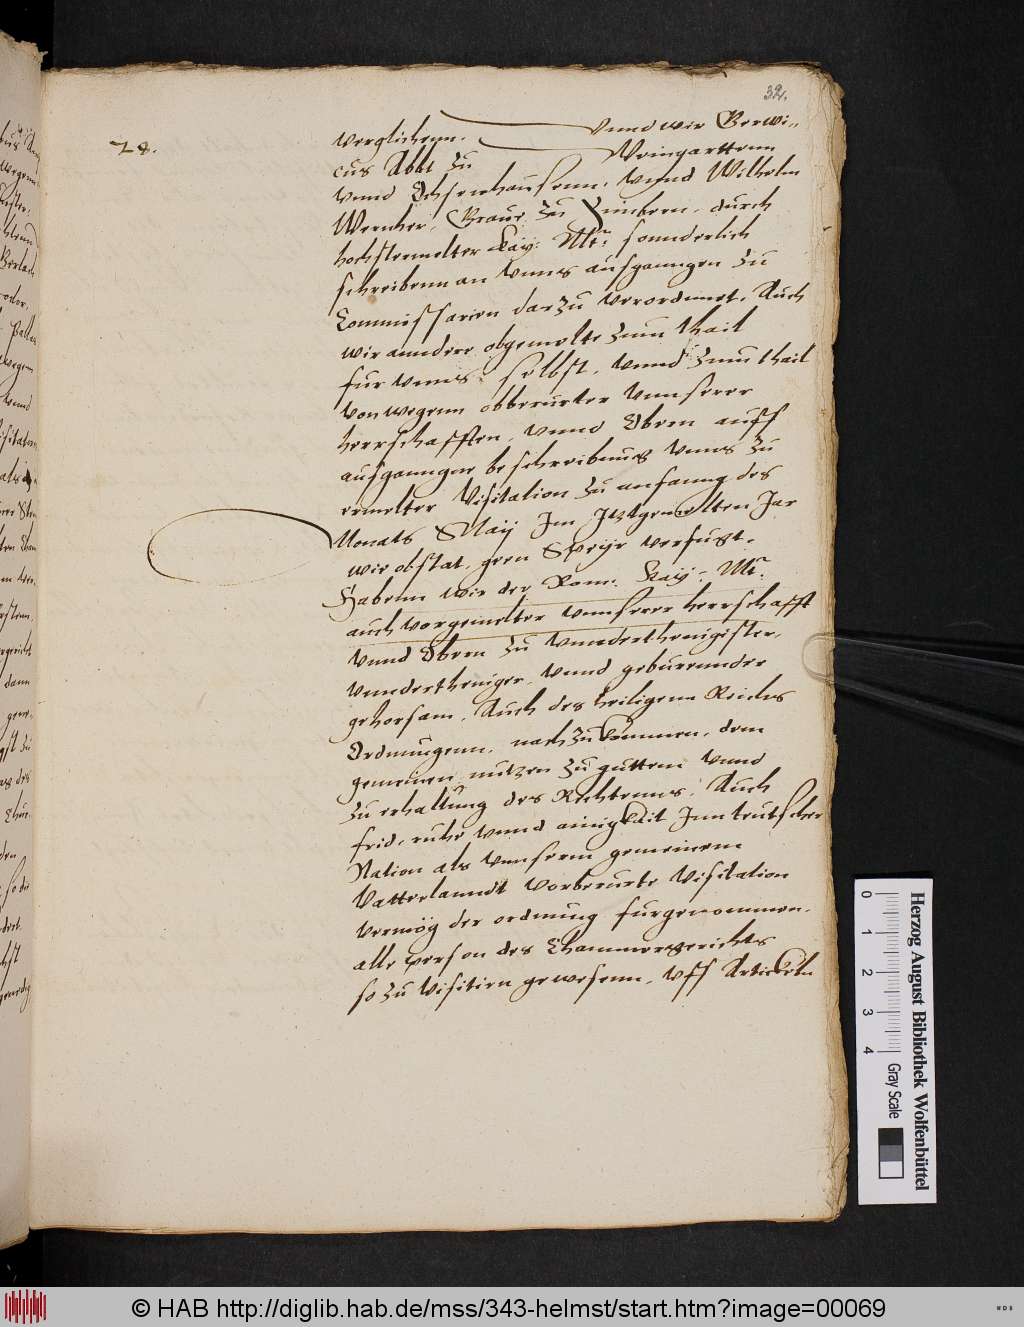 32.
28.
verglichenn. Vnnd wir Gerwi-
cus Abbt zu Weingarttenn
vnnd Ochsenhausenn, vnnd Wilhelm
Wernher, Graue zu Zimbern, durch
hochstermelter Kay: Mt: sonnderlich
schreibenn an vnns ausganngen zu
Commissarien darzu verordnnet, Auch
wir anndere obgemelte zum thail
fur vnns selbst, vnnd zum thail
von wegenn obberurter vnnserer
herrschafften, vnnd Obern auff
ausganngne beschreibung vnns zu
ermelter Visitation zu anfanng des
Monats Maij Im Jtztgemelten Jar
wie obstat, geen Speyr verfugt.
Habenn wir der Rom: Kay: Mt:
auch vorgemelter vnnserer herrschafft
vnnd Obern zu vnnderthenigister,
vnndertheniger, vnnd geburennder
gehorsam, Auch des heiligenn Reichs
Ordnungenn, nachzukommen, dem
gemeinen nutzen zu guttem vnnd
zu erhaltung des Rechtenns, Auch
frid, ruhe vnnd ainigkait Inn teutscher
Nation als vnnserm gemeinem
Vatterlanndt vorberurte Visitation
vermög der ordnung furgenommen,
alle person des Chammergerichts
so zu visitirn gewesenn, vff Artickeln
Herzog August Bibliothek Wolfenbüttel
0 1 2 3 4 Gray Scale
© HAB http://diglib.hab.de/mss/343-helmst/start.htm?image=00069